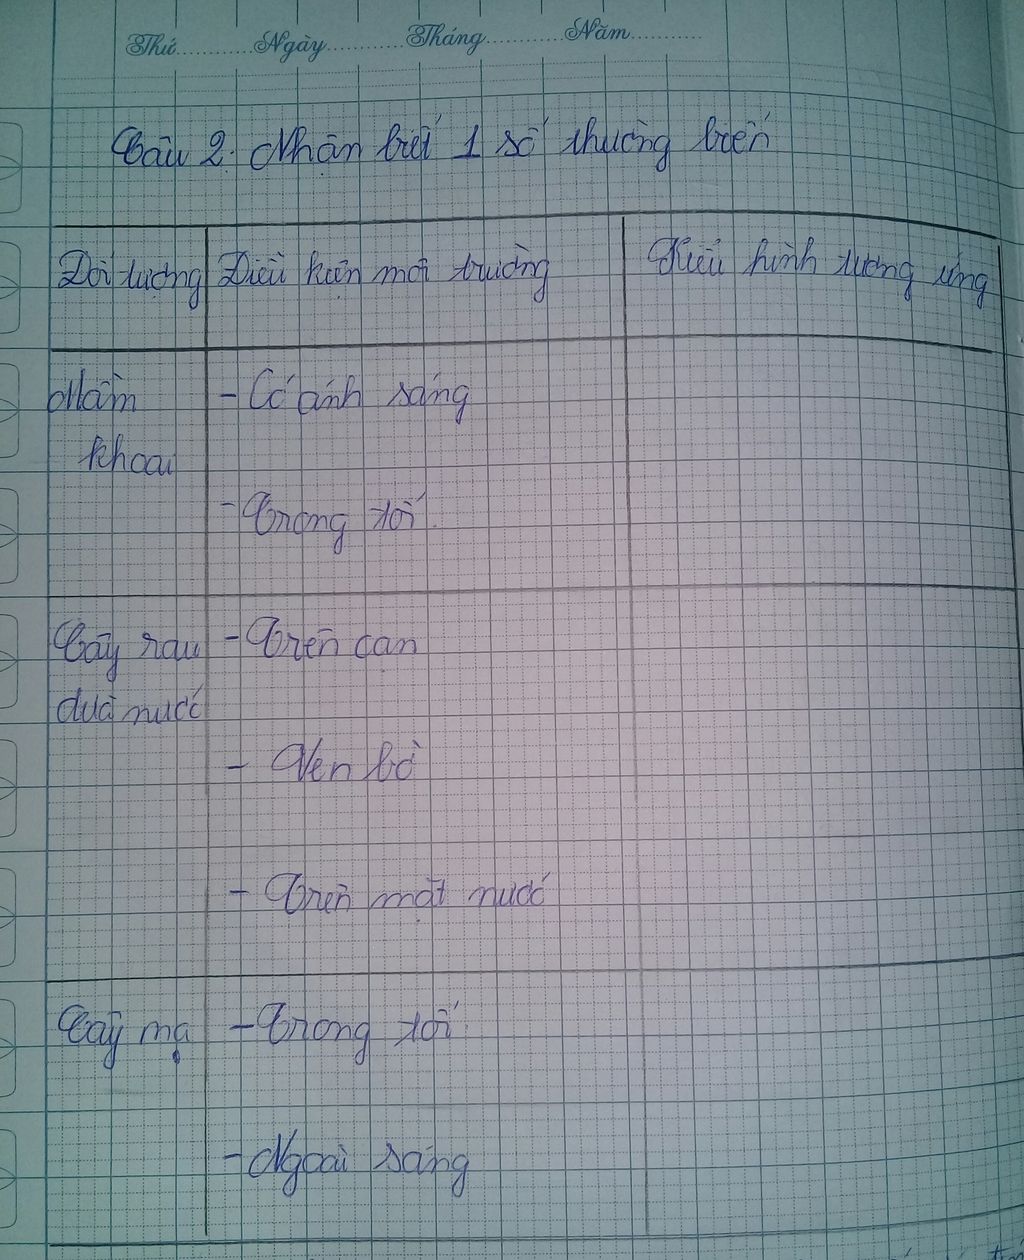 Thứ............Ngày............Tháng............Năm............
Câu 2. Nhận biết 1 số thường biến
Đối tượng
Điều kiện môi trường
Kiểu hình tương ứng
Mầm
khoai
- Có ánh sáng
- Trong tối
Cây rau
dừa nước
- Trên cạn
- Ven bờ
- Trên mặt nước
Cây mạ
- Trong tối
- Ngoài sáng